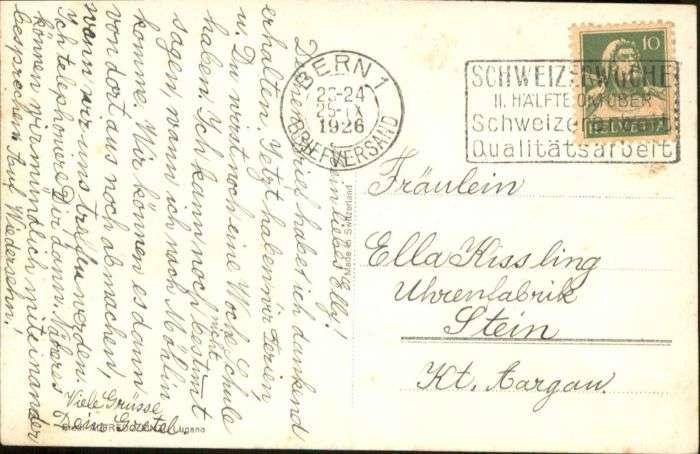 Mein liebes Elly!
Deinen Brief habe ich dankend
erhalten. Jetzt haben wir Ferien,
u. Du wirst noch eine Woche Schule
haben. Ich kann noch nicht bestimt
sagen, wann ich nach Möhlin
komme. Wir können es dann
von dort aus noch abmachen,
wann wir uns treffen werden.
Ich telephoniere Dir dann. Näheres
können wir mündlich miteinander
besprechen. Auf Wiedersehn!
Viele Grüsse
Dein Gretel.
Lugano
Made in Switzerland
BERN 1
23-24
25.IX
1926
BRIEFVERSAND
10
HELVETIA
SCHWEIZERWOCHE
II. HÄLFTE OKTOBER
Schweizer
Qualitätsarbeit
Fräulein
Ella Kissling
Uhrenfabrik
Stein
Kt. Aargau.